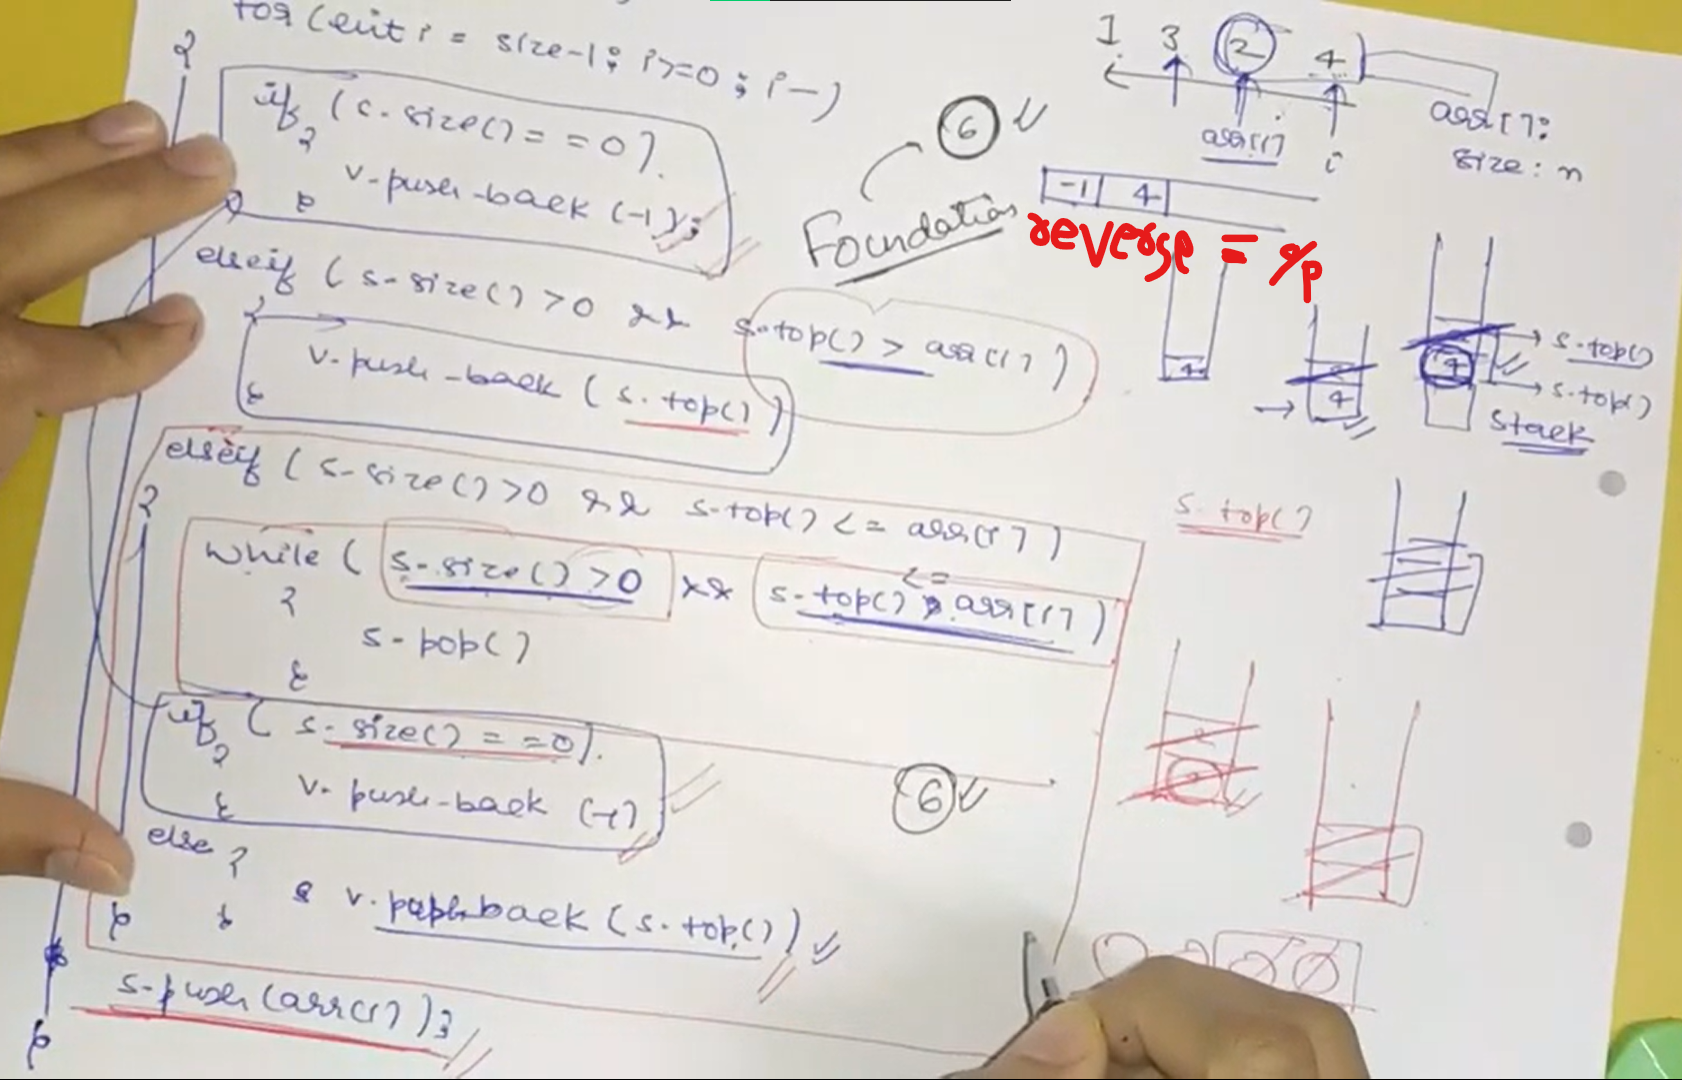 for (int i = size-1; i>=0; i--)
{
if (s.size() == 0)
{
v.push-back (-1);
}
else if (s.size() > 0 && s.top() > arr[i])
{
v.push-back (s.top())
}
else if (s.size() > 0 && s.top() <= arr[i])
{
while (s.size() > 0 && s.top() <= arr[i])
{
s.pop()
}
if (s.size() == 0)
{
v.push-back (-1)
}
else {
v.push-back (s.top())
}
}
s.push(arr[i]);
}
6
Foundation
6
1 3 2 4
arr[i]
i
arr[]:
size: n
-1 4
reverse = o/p
4
4
4
s.top()
s.top()
Stack
s.top()